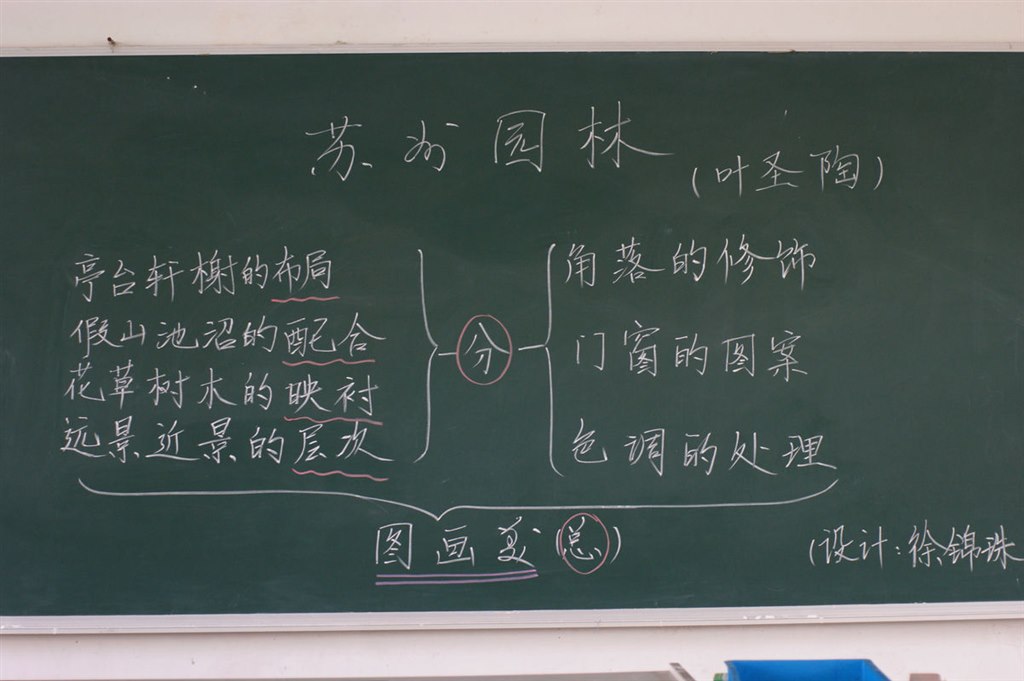 苏州园林
(叶圣陶)
亭台轩榭的布局
假山池沼的配合
花草树木的映衬
远景近景的层次
分
角落的修饰
门窗的图案
色调的处理
图画美(总)
(设计:徐锦珠